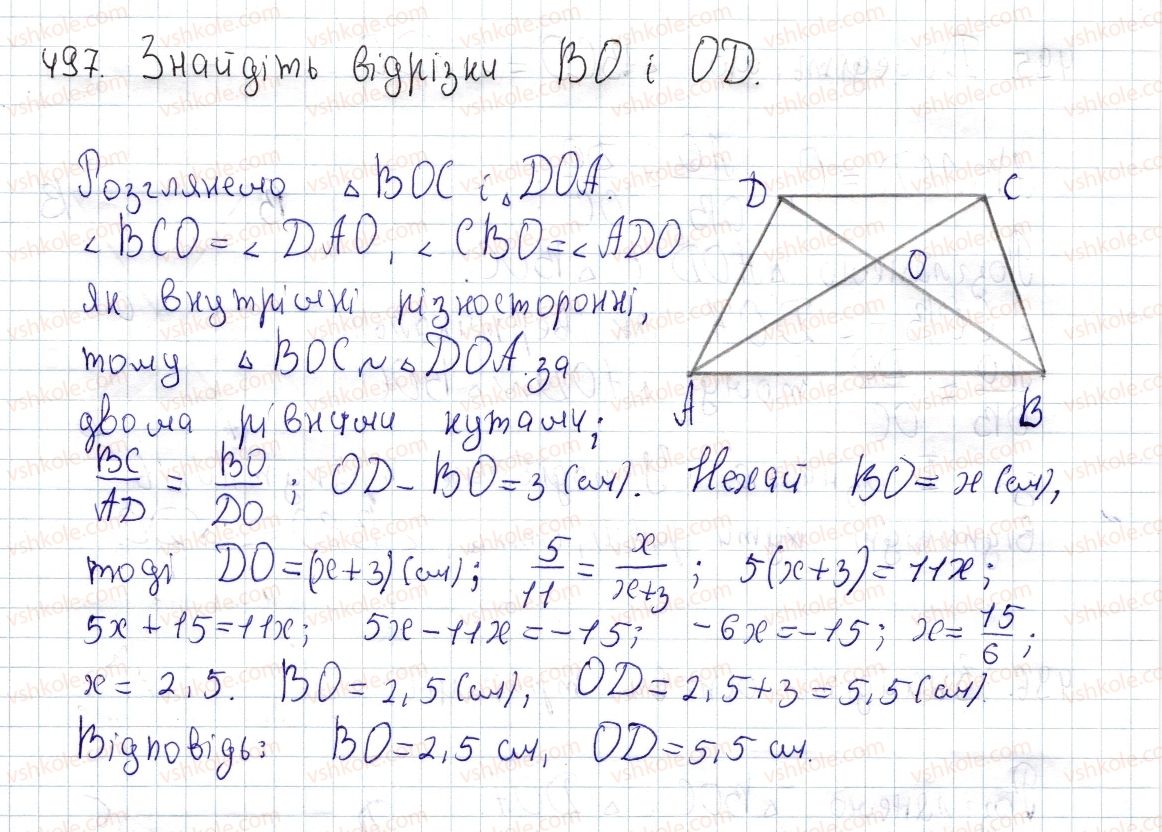 497. Знайдіть відрізки BO і OD.
Розглянемо △BOC і △DOA.
∠BCO = ∠DAO, ∠CBO = ∠ADO
як внутрішні різносторонні,
тому △BOC ~ △DOA за
двома рівними кутами;
BC/AD = BO/DO; OD - BO = 3 (см). Нехай BO = x (см),
тоді DO = (x+3) (см); 5/11 = x/x+3; 5(x+3) = 11x;
5x + 15 = 11x; 5x - 11x = -15; -6x = -15; x = 15/6;
x = 2,5. BO = 2,5 (см), OD = 2,5 + 3 = 5,5 (см).
Відповідь: BO = 2,5 см, OD = 5,5 см.
D C
O
A B
vshkole.com